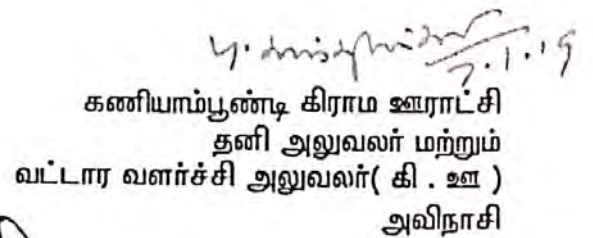 7.1.19
கணியாம்பூண்டி கிராம ஊராட்சி
தனி அலுவலர் மற்றும்
வட்டார வளர்ச்சி அலுவலர்( கி . ஊ )
அவிநாசி